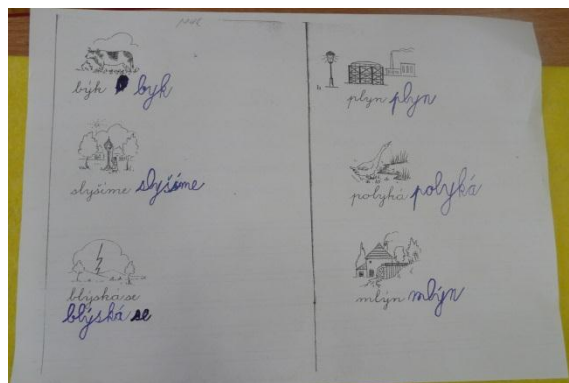 býk byk
slyšíme slyšíme
blýská se
blýská se
plyn plyn
polyká polyká
mlýn mlýn